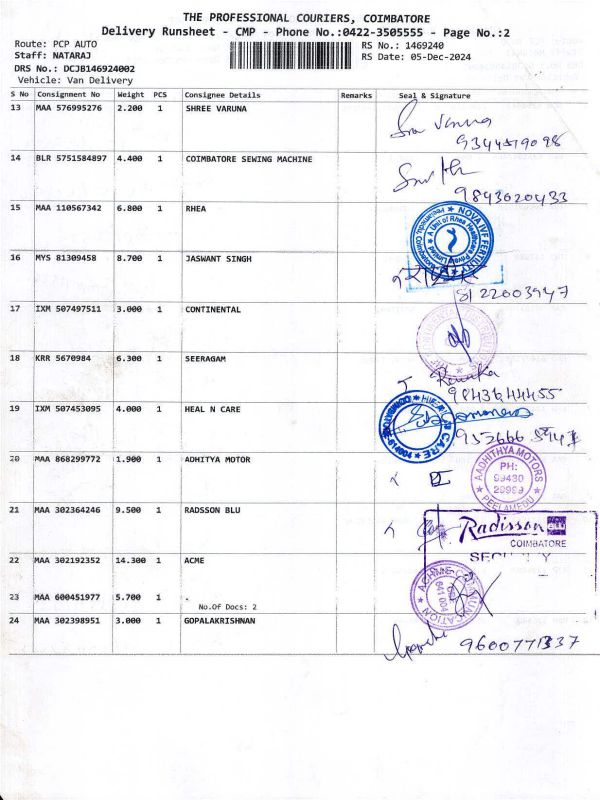 THE PROFESSIONAL COURIERS, COIMBATORE
Delivery Runsheet - CMP - Phone No.:0422-3505555 - Page No.:2
Route: PCP AUTO RS No.: 1469240
Staff: NATARAJ RS Date: 05-Dec-2024
DRS No.: DCJB146924002
Vehicle: Van Delivery
S No Consignment No Weight PCS Consignee Details Remarks Seal & Signature
13 MAA 576995276 2.200 1 SHREE VARUNA
14 BLR 5751584897 4.400 1 COIMBATORE SEWING MACHINE
9843020433
15 MAA 110567342 6.800 1 RHEA
NOVA IVF FERTILITY
A Unit of Rhea Healthcare Private Limited
16 MYS 81309458 8.700 1 JASWANT SINGH
8122003947
17 IXM 507497511 3.000 1 CONTINENTAL
18 KRR 5670984 6.300 1 SEERAGAM
9843644455
19 IXM 507453095 4.000 1 HEAL N CARE
20 MAA 868299772 1.900 1 ADHITYA MOTOR
AADHITHYA MOTORS
PH:
PEELAMEDU
21 MAA 302364246 9.500 1 RADSSON BLU
Radisson BLU
COIMBATORE
SECURITY
22 MAA 302192352 14.300 1 ACME
23 MAA 600451977 5.700 1 .
No.Of Docs: 2
641 004
24 MAA 302398951 3.000 1 GOPALAKRISHNAN
9600771337